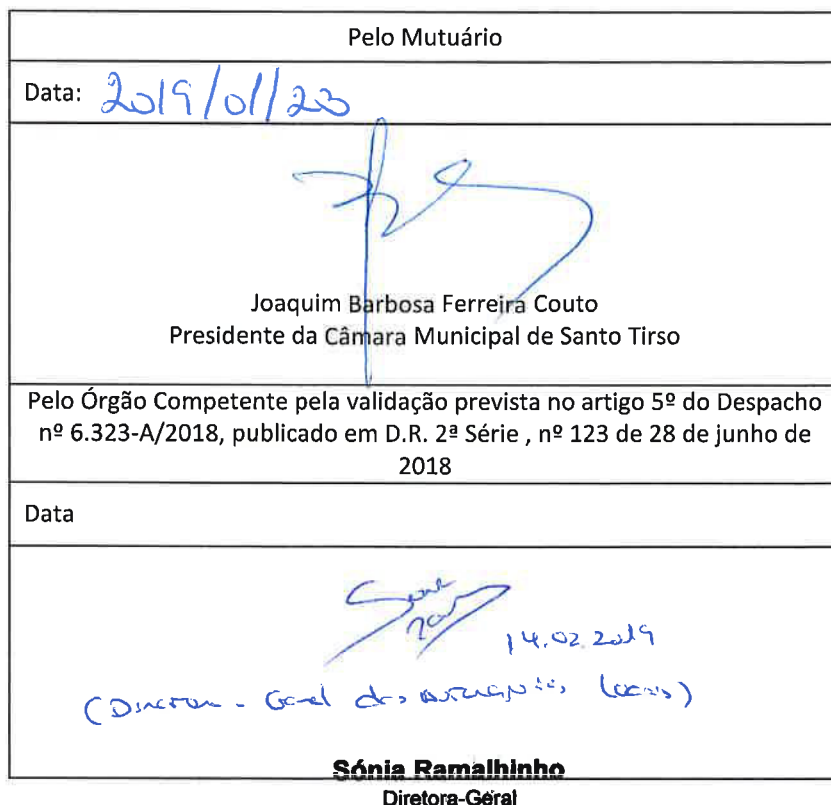 Pelo Mutuário
Data: 2019/01/23
Joaquim Barbosa Ferreira Couto
Presidente da Câmara Municipal de Santo Tirso
Pelo Órgão Competente pela validação prevista no artigo 5º do Despacho
nº 6.323-A/2018, publicado em D.R. 2ª Série , nº 123 de 28 de junho de
2018
Data
14.02.2019
Sónia Ramalhinho
Diretora-Geral